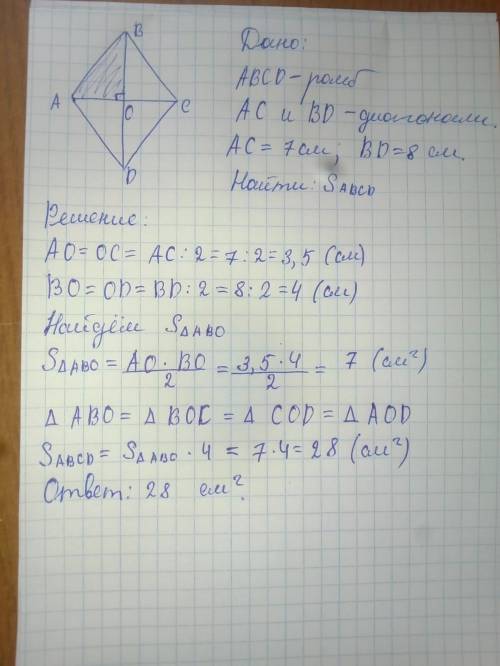 B
A
O
C
D
Дано:
ABCD - ромб
AC и BD - диагонали.
AC = 7 см; BD = 8 см.
Найти: SABCD
Решение:
AO = OC = AC : 2 = 7 : 2 = 3,5 (см)
BO = OD = BD : 2 = 8 : 2 = 4 (см)
Найдём S△ABO
S△ABO = AO · BO / 2 = 3,5 · 4 / 2 = 7 (см²)
△ ABO = △ BOC = △ COD = △ AOD
SABCD = S△ABO · 4 = 7 · 4 = 28 (см²)
Ответ: 28 см².